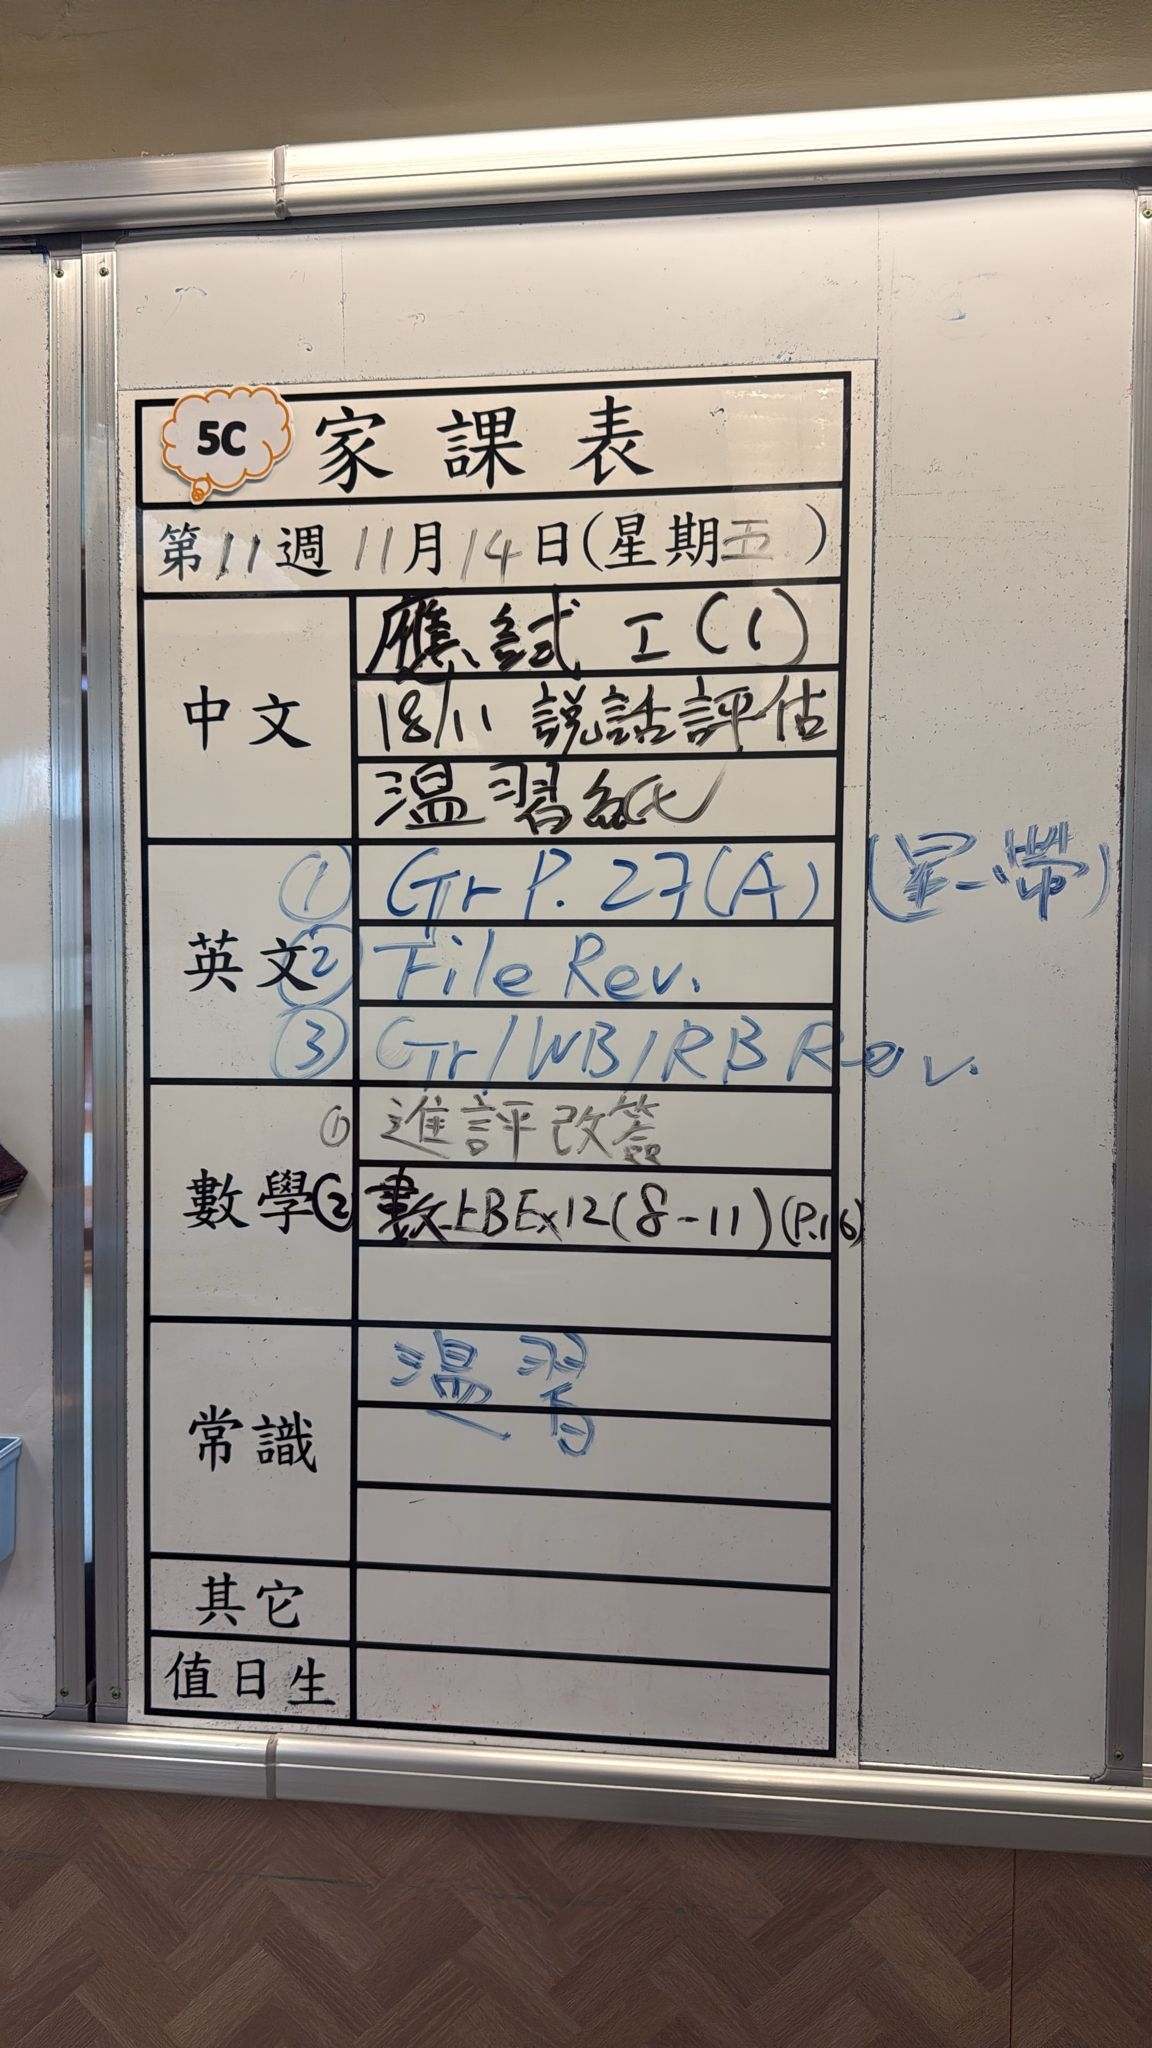 5C 家課表
第11週 11月14日(星期五)
中文
應試 工(1)
18/11 說話評估
溫習紙
英文
① Gr P.27(A) (星一帶)
② File Rev.
③ Gr/WB/RB Rev.
數學
① 進評改簽
② 數上BEx12(8-11)(P.16)
常識
溫習
其它
值日生